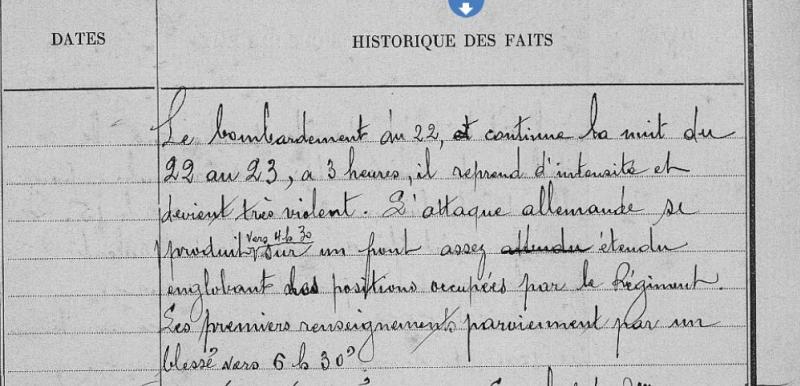 DATES
HISTORIQUE DES FAITS
Le bombardement du 22, et continue la nuit du
22 au 23, a 3 heures, il reprend d'intensité et
devient très violent. L'attaque allemande se
produit vers 4h30 sur un front assez attendu étendu
englobant les positions occupées par le Régiment.
Les premiers renseignements parviennent par un
blessé vers 6 h 30